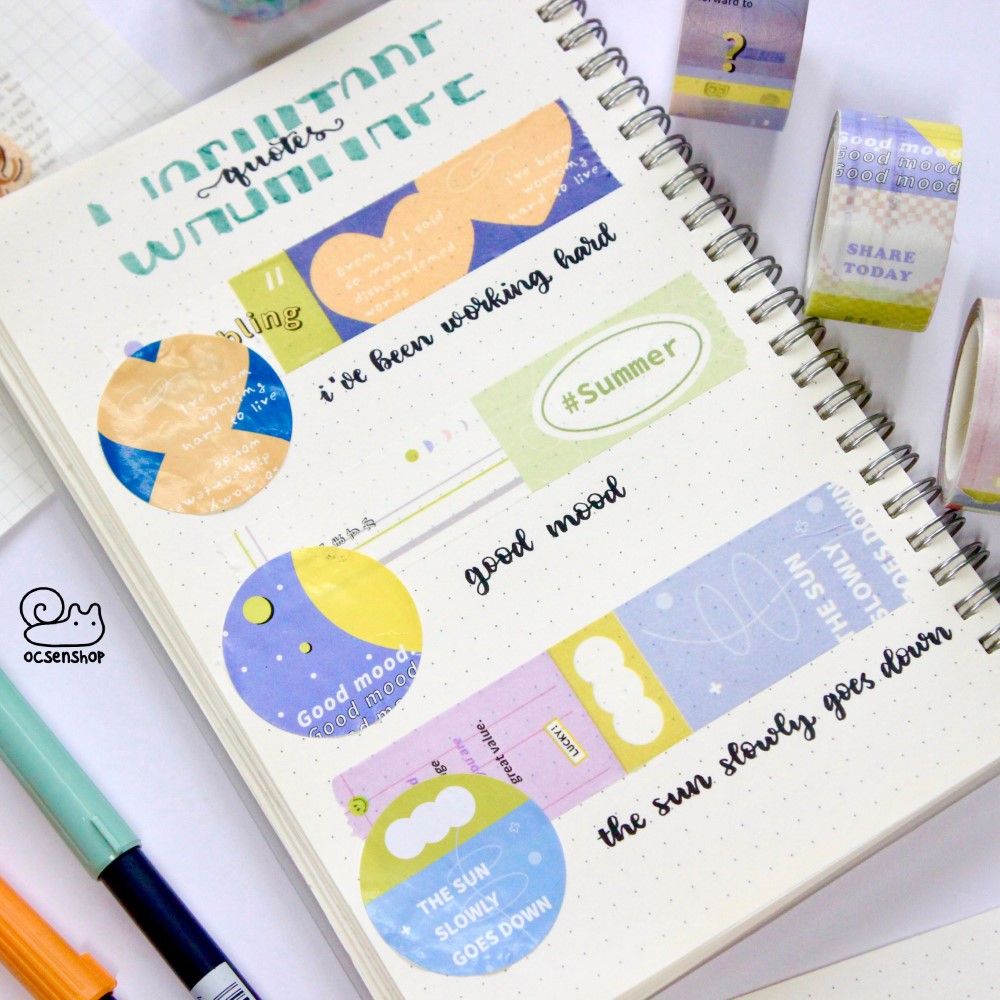 quotes
forward to
?
Good mood
Good mood
Good mood
SHARE
TODAY
"
bling
Even if I said
so many
disheartened
words
i've been
working
hard to live
i've been working hard
I've been
working
hard to live
words
#Summer
good mood
Good mood,
Good mood
Good mood
THE SUN
SLOWLY
GOES DOWN
LUCKY!
you are
great value.
the sun slowly goes down
THE SUN
SLOWLY
GOES DOWN
OCSENSHOP